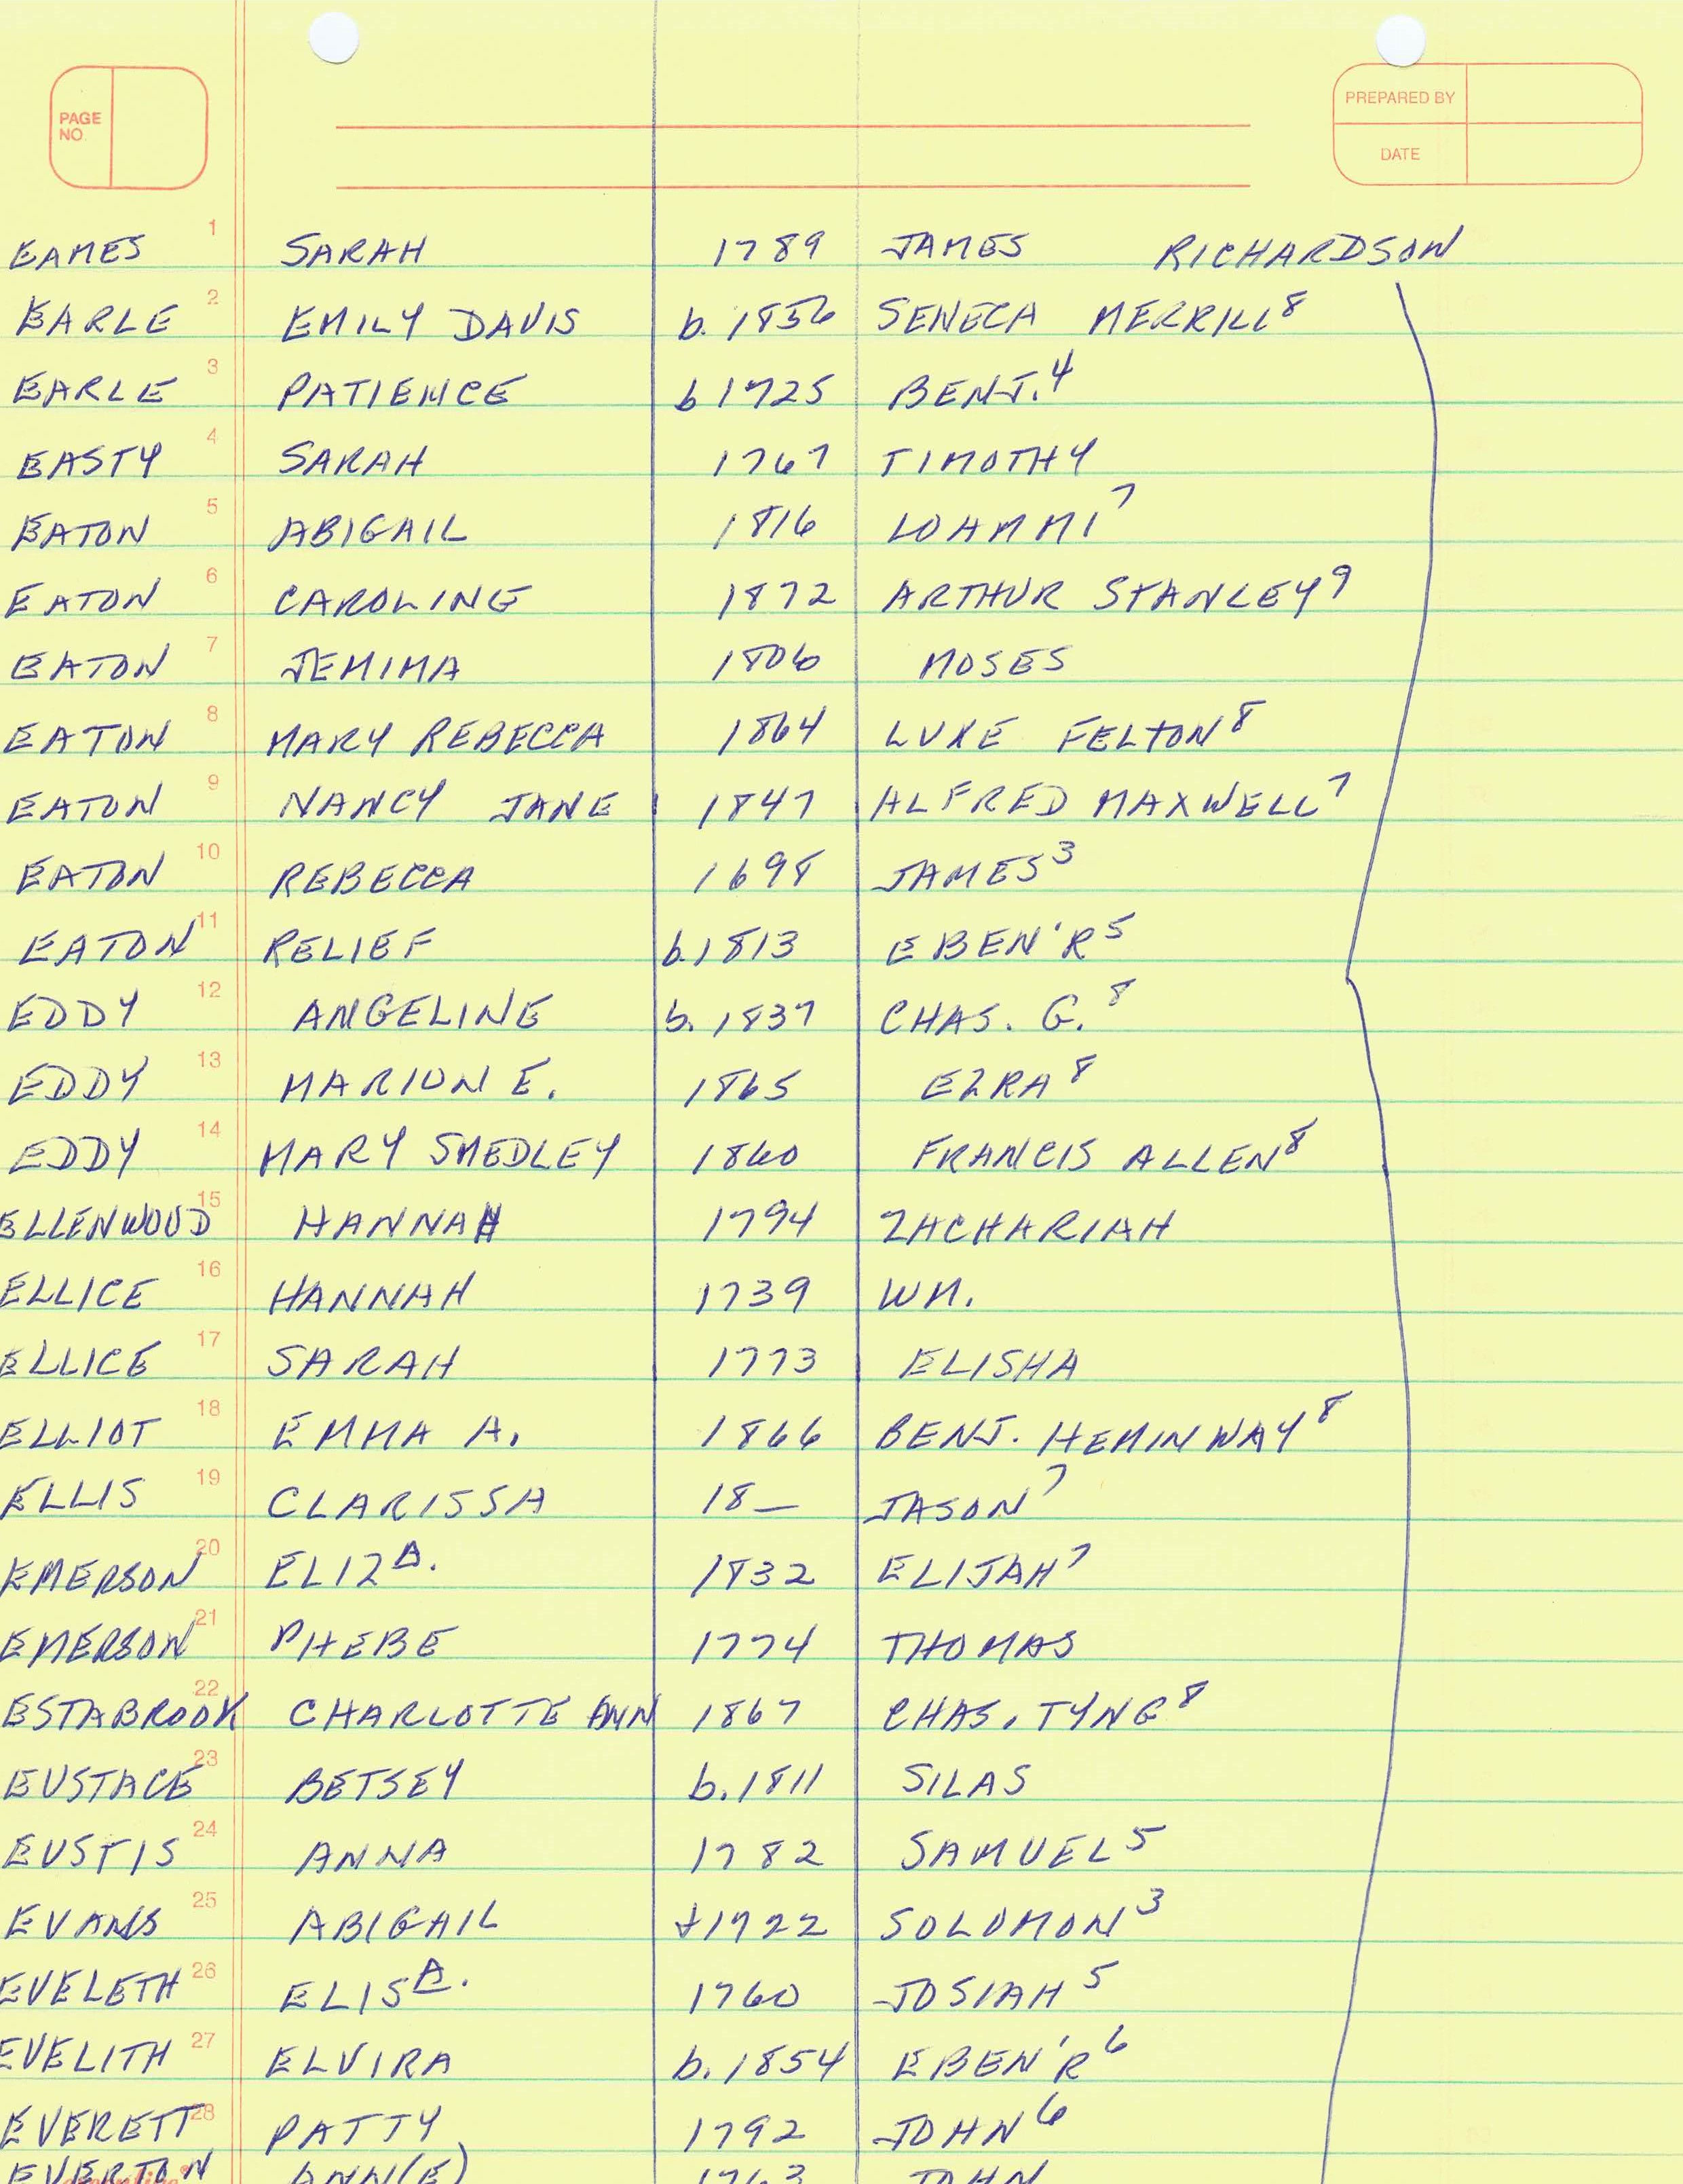 PAGE NO.
PREPARED BY
DATE
1 EAMES SARAH 1789 JAMES RICHARDSON
2 EARLE EMILY DAVIS b. 1856 SENECA MERRILL⁸
3 EARLE PATIENCE b 1725 BENJ.⁴
4 EASTY SARAH 1767 TIMOTHY
5 EATON ABIGAIL 1816 LOAMMI⁷
6 EATON CAROLINE 1872 ARTHUR STANLEY⁹
7 EATON JEMIMA 1806 MOSES
8 EATON MARY REBECCA 1864 LUKE FELTON⁸
9 EATON NANCY JANE 1847 ALFRED MAXWELL⁷
10 EATON REBECCA 1698 JAMES³
11 EATON RELIEF b. 1813 EBEN'R⁵
12 EDDY ANGELINE b. 1837 CHAS. G.⁸
13 EDDY MARION E. 1865 EZRA⁸
14 EDDY MARY SMEDLEY 1860 FRANCIS ALLEN⁸
15 ELLENWOOD HANNAH 1794 ZACHARIAH
16 ELLICE HANNAH 1739 WM.
17 ELLICE SARAH 1773 ELISHA
18 ELLIOT EMMA A. 1866 BENJ. HEMINWAY⁸
19 ELLIS CLARISSA 18_ JASON⁷
20 EMERSON ELIZA. 1832 ELIJAH⁷
21 EMERSON PHEBE 1774 THOMAS
22 ESTABROOK CHARLOTTE ANN 1867 CHAS. TYNG⁸
23 EUSTACE BETSEY b. 1811 SILAS
24 EUSTIS ANNA 1782 SAMUEL⁵
25 EVANS ABIGAIL †1722 SOLOMON³
26 EVELETH ELISA. 1760 JOSIAH⁵
27 EVELITH ELVIRA b. 1854 EBEN'R⁶
28 EVERETT PATTY 1792 JOHN⁶
EVERTON ANN(E) 1763 JOHN